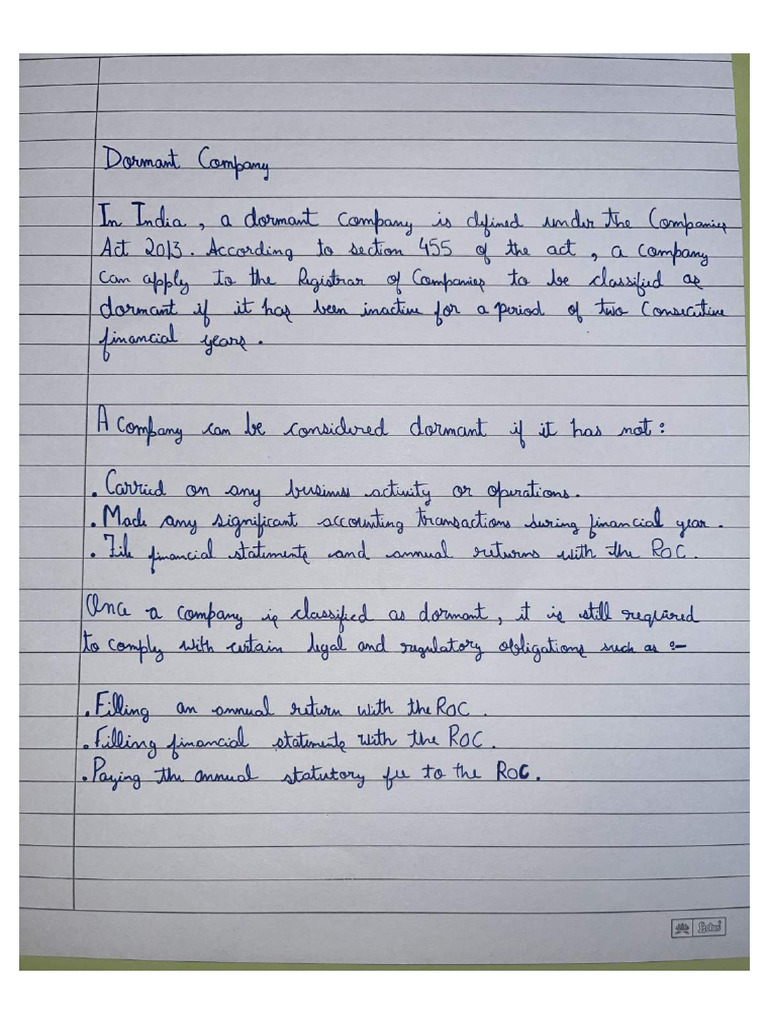 Dormant Company
In India, a dormant company is defined under the Companies
Act 2013. According to section 455 of the act, a company
can apply to the Registrar of Companies to be classified as
dormant if it has been inactive for a period of two Consecutive
financial years.
A company can be considered dormant if it has not:
. Carried on any business activity or operations.
. Made any significant accounting transactions during financial year.
. File financial statements and annual returns with the ROC.
Once a company is classified as dormant, it is still required
to comply with certain legal and regulatory obligations such as :-
. Filling an annual return with the ROC.
. Filling financial statements with the ROC.
. Paying the annual statutory fee to the ROC.